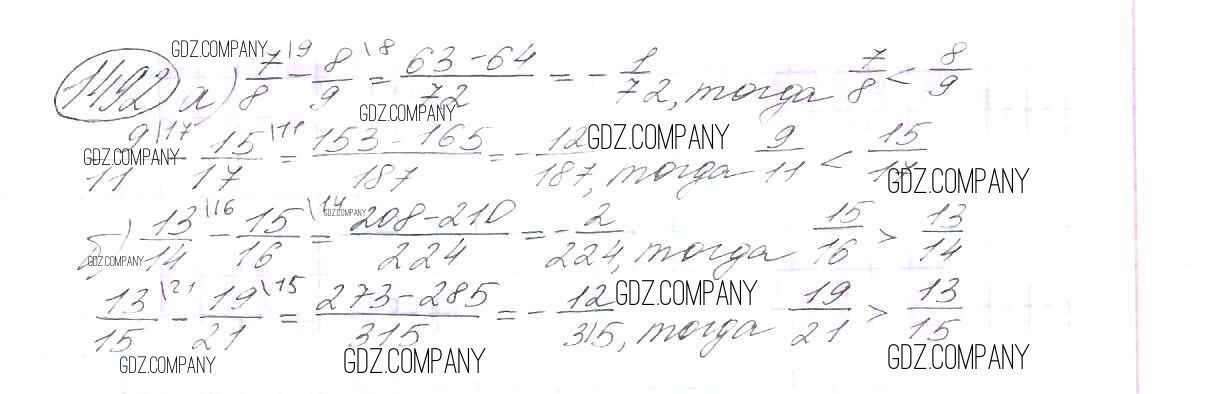 GDZ.COMPANY
1492 а) 7/8 \9 - 8/9 \8 = (63-64)/72 = - 1/72, тогда 7/8 < 8/9
GDZ.COMPANY
9/11 \17 - 15/17 \11 = (153-165)/187 = - 12/187, тогда 9/11 < 15/17
GDZ.COMPANY GDZ.COMPANY GDZ.COMPANY
б) 13/14 \16 - 15/16 \14 = (208-210)/224 = - 2/224, тогда 15/16 > 13/14
GDZ.COMPANY GDZ.COMPANY
13/15 \21 - 19/21 \15 = (273-285)/315 = - 12/315, тогда 19/21 > 13/15
GDZ.COMPANY
GDZ.COMPANY GDZ.COMPANY GDZ.COMPANY